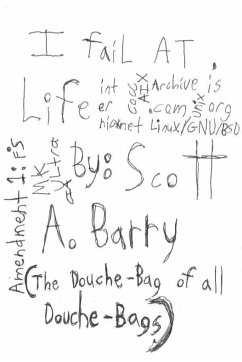 I faiL AT
Life
int
er
Archive.is
AIX
.com
unix
.org
net Linux/GNU/BSD
MK
Ultra
By: Scott
A. Barry
Amendment 1: FS
(The Douche-Bag of all
Douche-Bags)